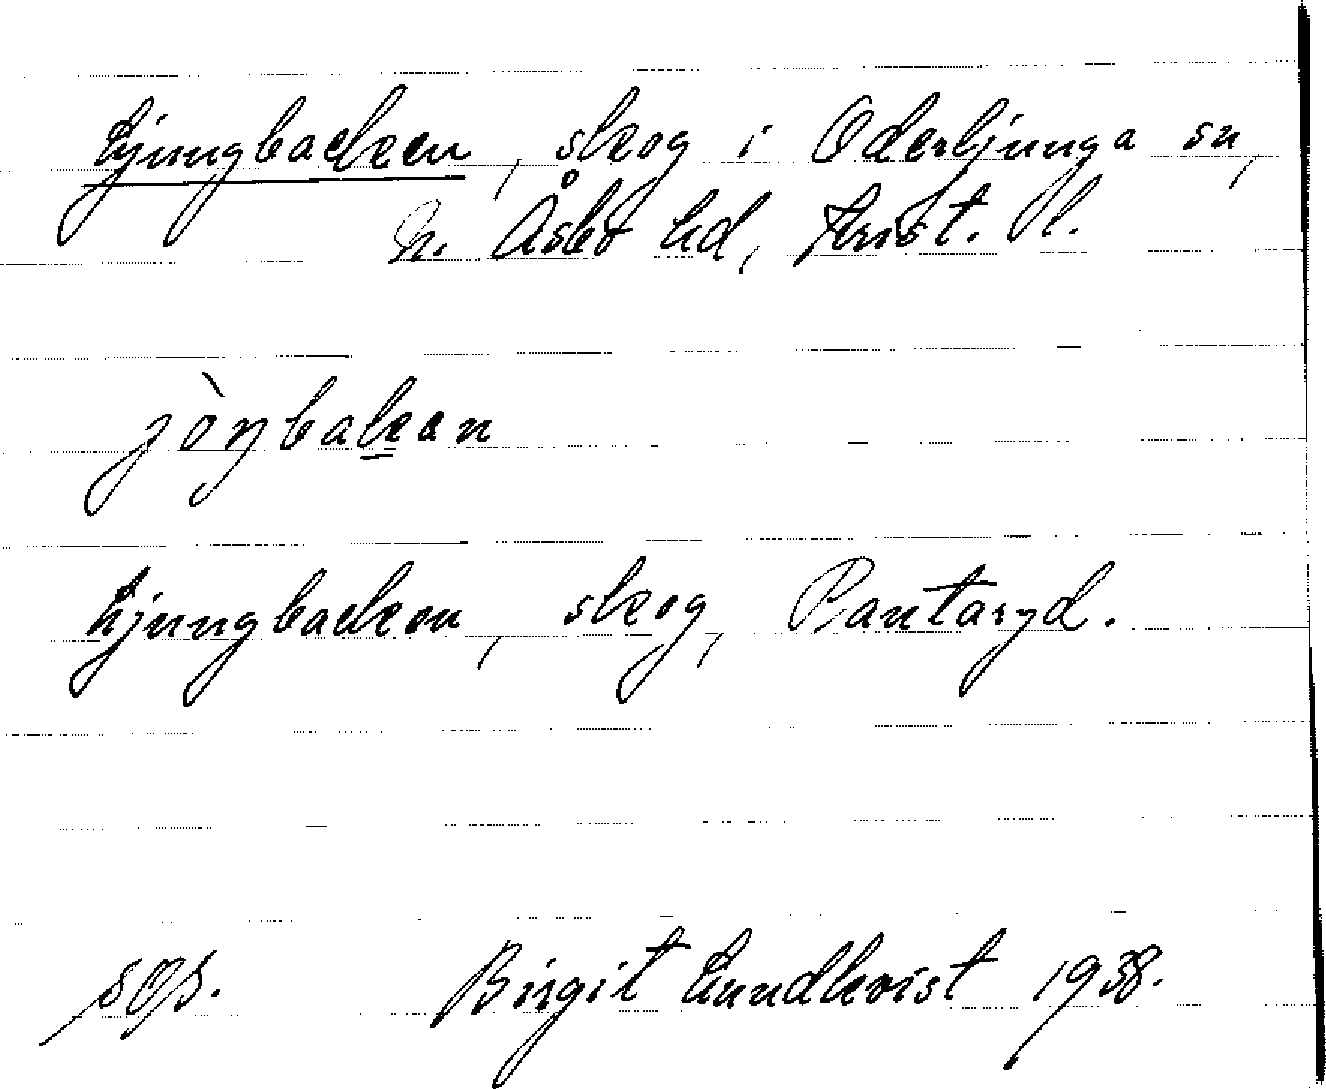 Ljungbacken, skog i Oderljunga sn,
N. Åsbo hd, Krist. l.
jòŋbakan
Ljungbacken, skog, Bantaryd.
sgs. Birgit Lundkvist 1938.